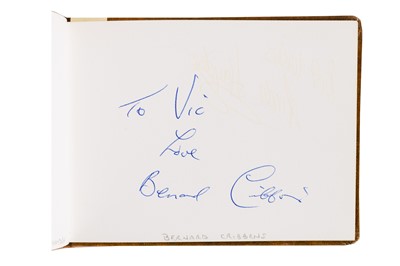 To Vic
Love
Bernard Cribbins
BERNARD CRIBBENS